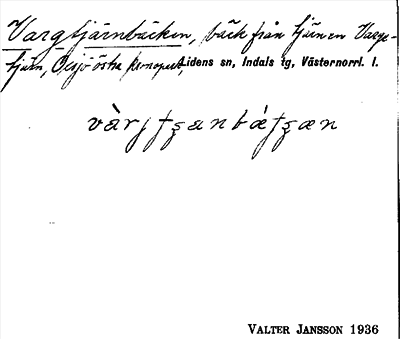 Vargtjärnbäcken, bäck från tjärnen Varg-
tjärn, Oxsjö östra kronopark, Lidens sn, Indals tg, Västernorrl. l.
VALTER JANSSON 1936